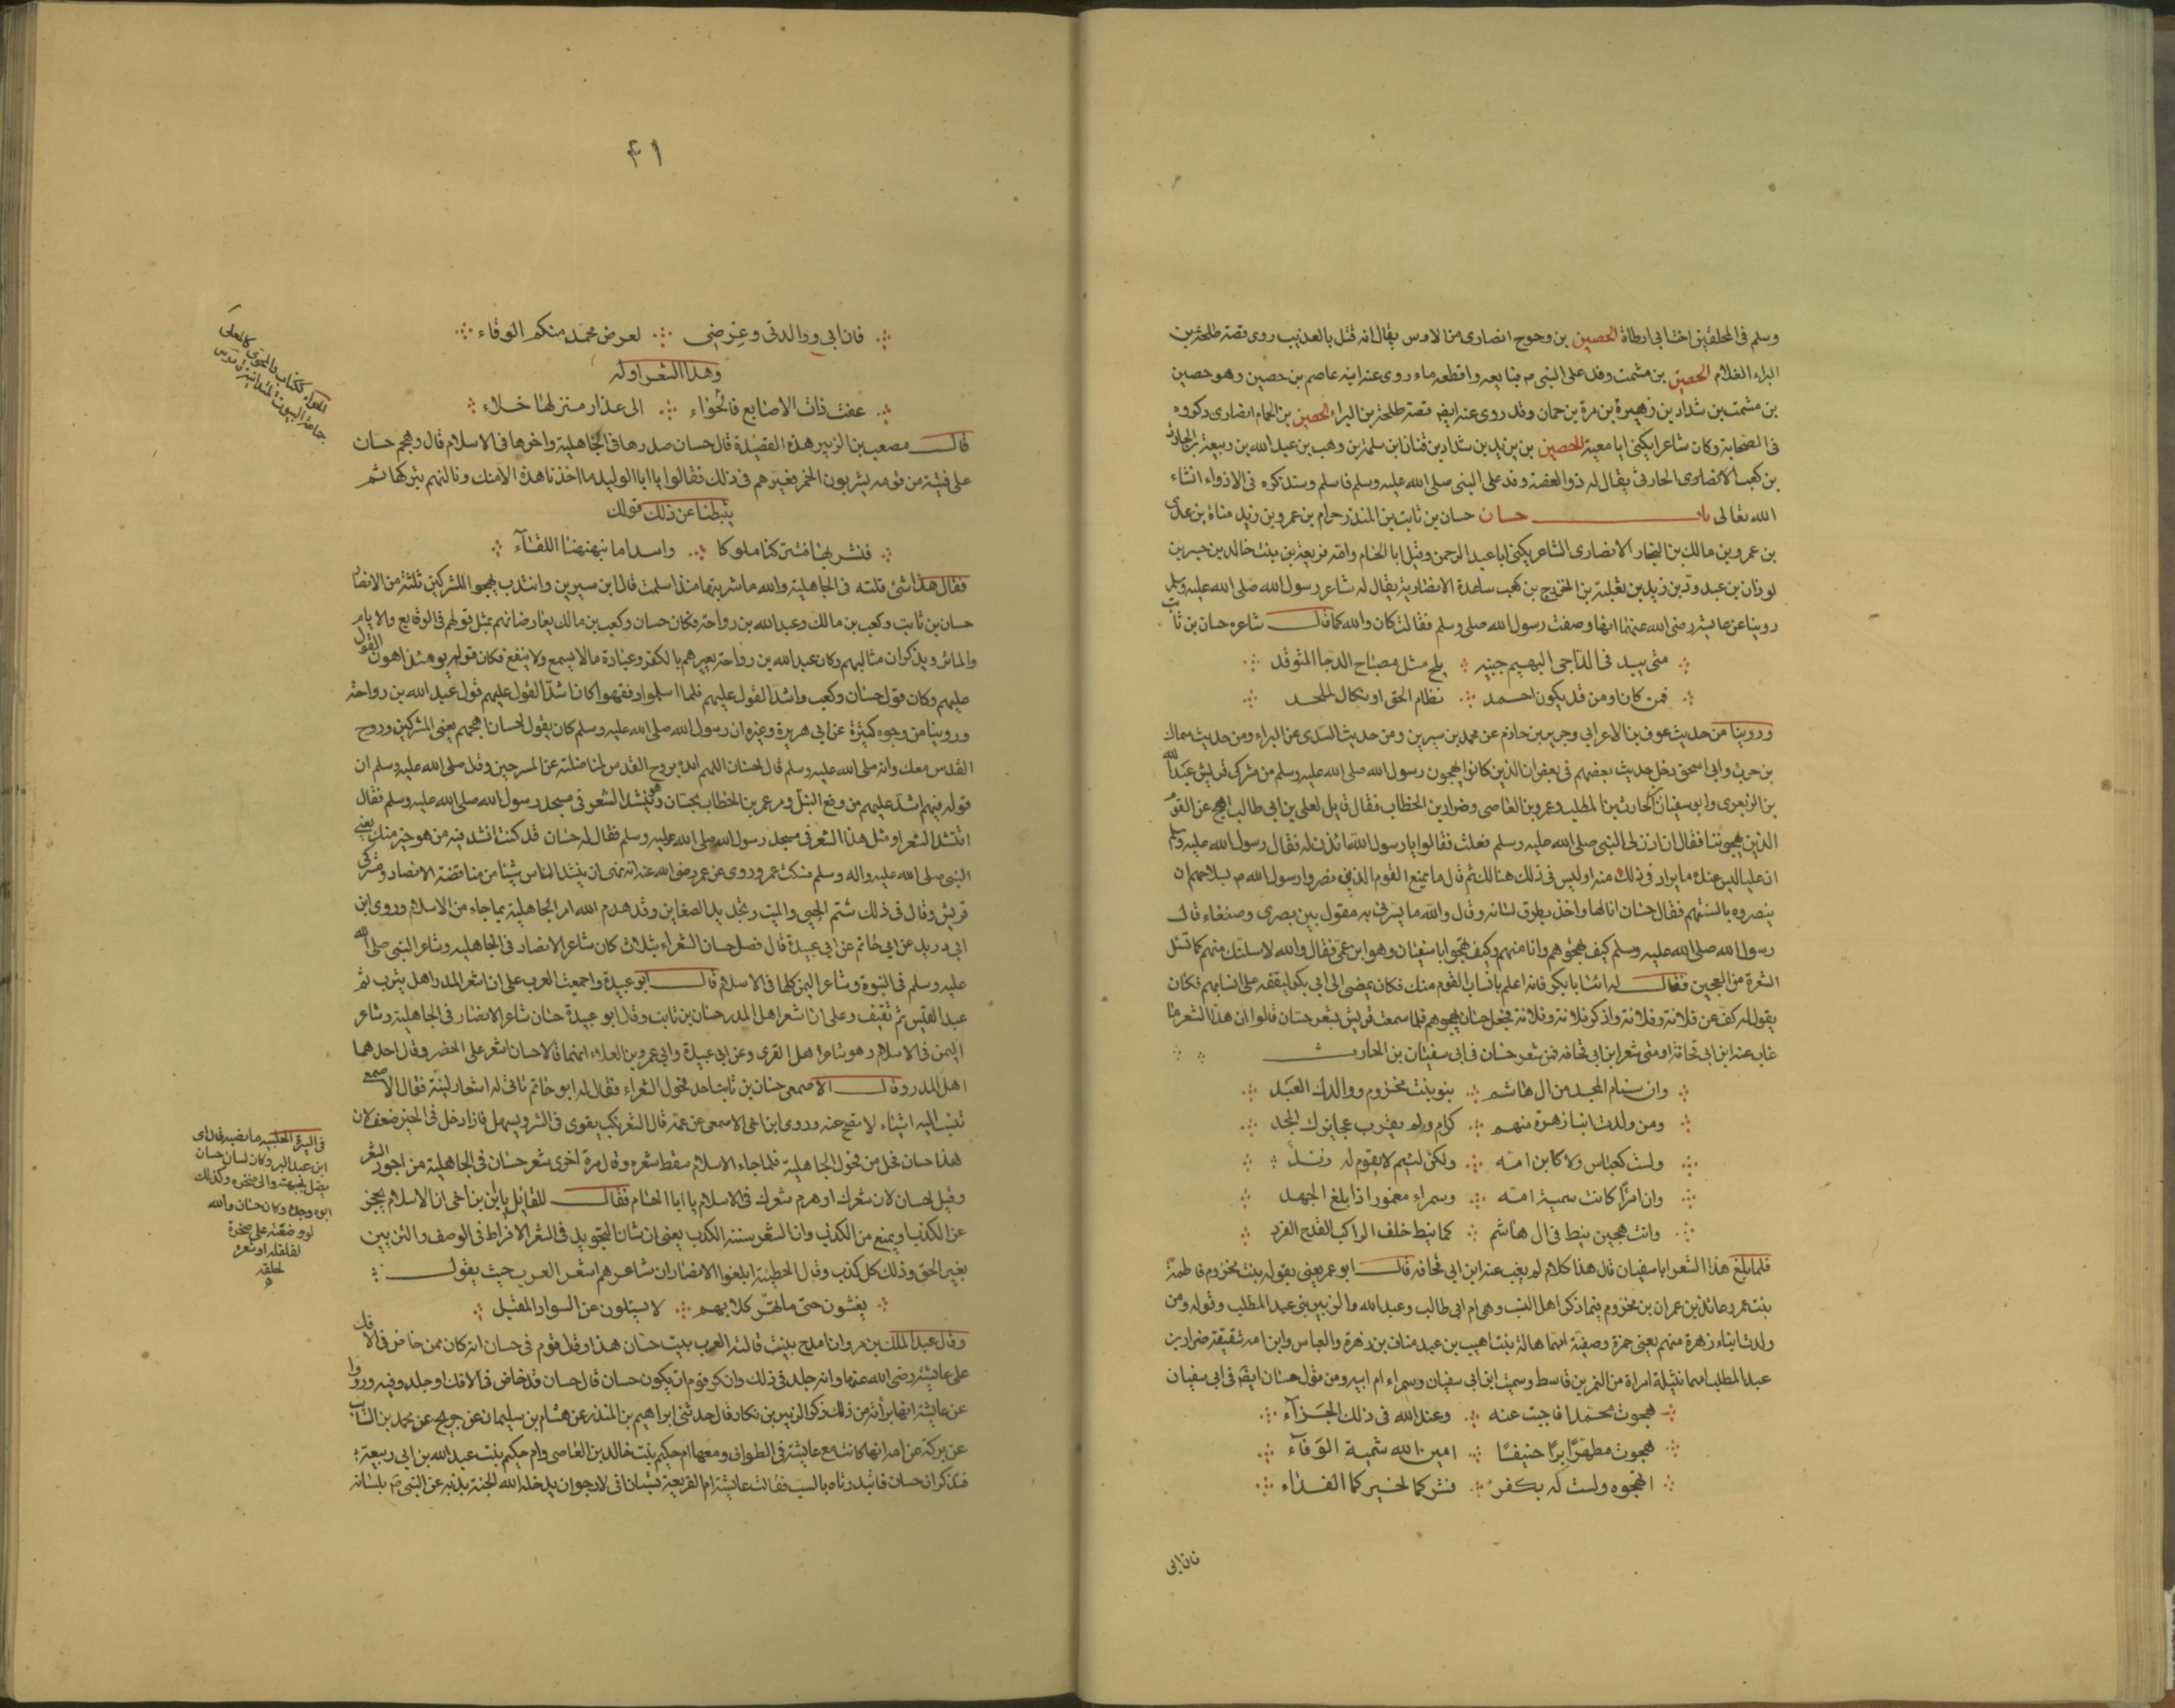 وسلم فى المحلقين اخت ابى ارطاة الحصين بن وحوح انصارى من الاوس يقال انه قتل بالعذيب روى قصة طلحة بن
البراء الغلام الحصين بن مشمت وفد على النبى م فبايعه واقطعه ماء روى عنه ابنه عاصم بن حصين وهو حصين
بن مشمت بن شداد بن زهير بن مرة بن حمان وقد روى عنه ايضا قصة طلحة بن البراء الحصين بن الحمام انصارى ذكروه
فى الصحابة وكان شاعرا يكنى ابا معية الحصين بن يزيد بن شداد بن قنان ابن سلمة بن وهب بن عبد الله بن ربيعة بن الحارث
بن كعب الانصارى الحارثى يقال له ذو الغصة وفد على النبى صلى الله عليه وسلم فاسلم وسنذكره فى الاذواء انشاء
الله تعالى باب حسان حسان بن ثابت بن المنذر حرام بن عمرو بن زيد مناة بن عدى
بن عمرو بن مالك بن النجار الانصارى الشاعر يكنى ابا عبد الرحمن وقيل ابا الحسام وامه فريعة بن بنت خالد بن خنيس بن
لوذان بن عبد ود بن زيد بن ثعلبة بن الخزرج بن كعب ساعدة الانصارية يقال له شاعر رسول الله صلى الله عليه وسلم
روينا عن عايشة رضى الله عنها انها وصفت رسول الله صلى وسلم فقالت كان والله كما قال شاعره حسان بن ثابت
متى يبد فى الداجى البهيم جبينه يلح مثل مصباح الدجا المتوقد
فمن كان او من قد يكون احمد نظام الحق او نكال لملحد
وروينا من حديث عوف بن الاعرابى وجرير بن حازم عن محمد بن سيرين ومن حديث السدى عن البراء ومن حديث سماك
بن حرب وابى اسحق دخل حديث بعضهم فى بعض ان الذين كانوا يهجون رسول الله صلى الله عليه وسلم من مشركى قريش عبد الله
بن الزبعرى وابو سفيان بن الحارث بن المطلب وعمرو بن العاصى وضرار بن الخطاب فقال قايل لعلى بن ابى طالب اهج عن القوم
الذين يهجوننا فقال ان اذن لى النبى صلى الله عليه وسلم فعلت فقالوا يا رسول الله ائذن له فقال رسول الله عليه وسلم
ان عليا ليس عنده ما يراد فى ذلك منه او ليس فى ذلك هنالك ثم قال ما يمنع القوم الذين نصروا رسول الله م بسلاحهم ان
ينصروه بالسنتهم فقال حسان انا لها واخذ بطرف لسانه وقال والله ما يسرنى به مقول بين بصرى وصنعاء قال
رسول الله صلى الله عليه وسلم كيف تهجوهم وانا منهم وكيف تهجو ابا سفيان وهو ابن عمى فقال والله لاسلنك منهم كما تسل
الشعرة من العجين فقال له ائت ابا بكر فانه اعلم بانساب القوم منك فكان يمضى الى ابى بكر ليقفه على انسابهم فكان
يقول له كف عن فلانة وفلانة واذكر فلانة وفلانة فجعل حسان يهجوهم فلما سمعت قريش شعر حسان قالوا ان هذا الشعر ما
غاب عنه ابن ابى قحافة او من شعر ابن ابى قحافه فمن شعر حسان فى ابى سفيان بن الحارث
وان سنام المجد من ال هاشم بنو بنت مخزوم ووالدك العبد
ومن ولدت ابناء زهرة منهم كرام ولم يقرب عجايزك المجد
ولست كعباس ولا كابن امه ولكن لئيم لا يقوم له زند
وان امرًا كانت سمية امه وسمراء مغمور اذا بلغ الجهد
وانت هجين نيط فى ال هاشم كما نيط خلف الراكب القدح الفرد
فلما بلغ هذا الشعر ابا سفيان قال هذا كلام لم يغب عنه ابن ابى قحافه قال ابو عمر يعنى بقوله بنت مخزوم فاطمة
بنت عمرو عائذ بن عمران بن مخزوم فيما ذكر اهل النسب وهى ام ابى طالب وعبد الله والزبير بنى عبد المطلب وقوله ومن
ولدت ابناء زهرة منهم يعنى حمزة وصفية امهما هالة بنت اهيب بن عبد مناف بن زهرة والعباس وابن امه شقيقه ضرار بن
عبد المطلب امهما نتيلة امراة من النمر بن قاسط وسمية ام ابى سفيان وسمراء ام ابيه ومن قول حسان ايضا فى ابى سفيان
هجوت محمدا فاجبت عنه وعند الله فى ذلك الجزآء
هجوت مطهرًا برًا حنيفًا امين الله شميه الوفآء
اتهجوه ولست له بكفؤ فشركما لخيركما الفداء
فان ابى
٤١
فان ابى ووالدتى وعِرضى لعرض محمد منكم الوقاء
وهذا الشعر اوله
عفت ذات الاصابع فالجواء الى عذار منزلها خلاء
قال مصعب بن الزبير هذه القصيدة قال حسان صدرها فى الجاهلية واخرها فى الاسلام قال وهجم حسان
على فتية من قومه يشربون الخمر فعيرهم فى ذلك فقالوا يا ابا الوليد ما اخذنا هذه الا منك وانا لنهم بتركها ثم
يثبطنا عن ذلك قولك
فنشربها فتتركنا ملوكا واسدا ما ينهنهنا اللقآء
فقال هذا شئ قلته فى الجاهلية والله ما شربتها منذ اسلمت قال ابن سيرين وانتدب لهجو المشركين ثلثة من الانصار
حسان بن ثابت وكعب بن مالك وعبد الله بن رواحة فكان حسان وكعب بن مالك يعارضانهم بمثل قولهم فى الوقايع والايام
والماثر ويذكران مثالبهم وكان عبد الله بن رواحة يعيرهم بالكفر وعبادة ما لا يسمع ولا ينفع فكان قوله يومئذ اهون القول
عليهم وكان قول حسان وكعب واشد القول عليهم فلما اسلموا وفقهوا كان اشد القول عليهم قول عبد الله بن رواحة
وروينا من وجوه كثيرة عن ابى هريرة وغيره ان رسول الله صلى الله عليه وسلم كان يقول لحسان اهجهم يعنى المشركين وروح
القدس معك وانه صلى الله عليه وسلم قال لحسان اللهم ايده بروح القدس لمناضلته عن المسرحين وقال صلى الله عليه وسلم ان
قوله فيهم اشد عليهم من وقع النبل ومر عمر بن الخطاب بحسان وهو ينشد الشعر فى مسجد رسول الله صلى الله عليه وسلم فقال
اتنشد الشعر او مثل هذا الشعر فى مسجد رسول الله صلى الله عليه وسلم فقال له حسان قد كنت انشد فيه من هو خير منك يعنى
النبى صلى الله عليه واله وسلم فسكت عمر وروى عن عمر رضى الله عنه انه نهى ان ينشد الناس شيئا من مناقضة الانصار ومشركى
قريش وقال فى ذلك شتم الحيى والميت وتجديد الضغاين وقد هدم الله امر الجاهلية بما جاء من الاسلام وروى ابن
ابى دريد عن ابى حاتم عن ابى عبيدة قال فضل حسان الشعراء بثلاث كان شاعر الانصار فى الجاهلية وشاعر النبى صلى الله
عليه وسلم فى النبوة وشاعر اليمن كلها فى الاسلام قال ابو عبيدة واجمعت العرب على ان اشعر المدر اهل يثرب ثم
عبد القيس ثم ثقيف وعلى ان اشعر اهل المدر حسان بن ثابت وقال ابو عبيدة حسان شاعر الانصار فى الجاهلية وشاعر
اليمن فى الاسلام وهو شاعر اهل القرى وعن ابى عبيدة وابى عمرو بن العلاء انهما قالا حسان اشعر على الحضر وقال احدهما
اهل المدر وقال الاصمعى حسان بن ثابت احد فحول الشعراء فقال له ابو حاتم تاتى له اشعار لينة فقال الاصمعى
تنسب اليه اشياء لا تصح عنه وروى ابن اخى الاصمعى عن عمه قال الشعر نكب يقوى فى الشر ويسهل فاذا دخل فى الخير ضعف لان
هذا حسان فحل من فحول الجاهلية فلما جاء الاسلام سقط شعره وقال مرة اخرى شعر حسان فى الجاهلية من اجود الشعر
وقيل لحسان لان شعرك او هرم شعرك فى الاسلام يا ابا الحسام فقال للقايل يابن بن اخى ان الاسلام يحجز
عن الكذب او يمنع من الكذب وان الشعر سنته الكذب يعنى ان شان التجويد فى الشعر الافراط فى الوصف والتزيين
بغير الحق وذلك كل كذب وقال الحطيئة ابلغوا الانصار ان شاعرهم اشعر العرب حيث يقول
يغشون حتى ما تهر كلابهم لا يسئلون عن السواد المقبل
وقال عبد الملك بن مروان امدح بيت قالته العرب بيت حسان هذا وقال قوم فى حسان انه كان ممن خاض فى الافك
على عايشة رضى الله عنها وانه جلد فى ذلك وانكر قوم ان يكون حسان قال حسان قد خاض فى الافك او جلد وفيه ورووا
عن عايشة انها برأته من ذلك ذكر الزبير بن بكار قال حدثنى ابراهيم بن المنذر عن هشام بن سليمان عن جريج عن محمد بن السايب
عن بركة عن امه انها كانت مع عايشة فى الطواف ومعها ام حكيم بنت خالد بن العاصى وام حكيم بنت عبد الله بن ابى ربيعة
فتذاكرن حسان فابتدرتاه بالسب فقالت عايشة ام الفريعة تسبان انى لارجو ان يدخله الله الجنة بذبه عن النبى م بلسانه
الحواء ككتاب
جماعة البيوت المتدانية قاموس
فى السيرة الحلبية ما نصه قال اى
ابن عبد البر وكان لسان حسان
يصل لجبهته والى نحره وكذلك
ابوه وجده وكان حسان والله
لو وضعته على صخرة
لفلقه او شعر
لحلقه